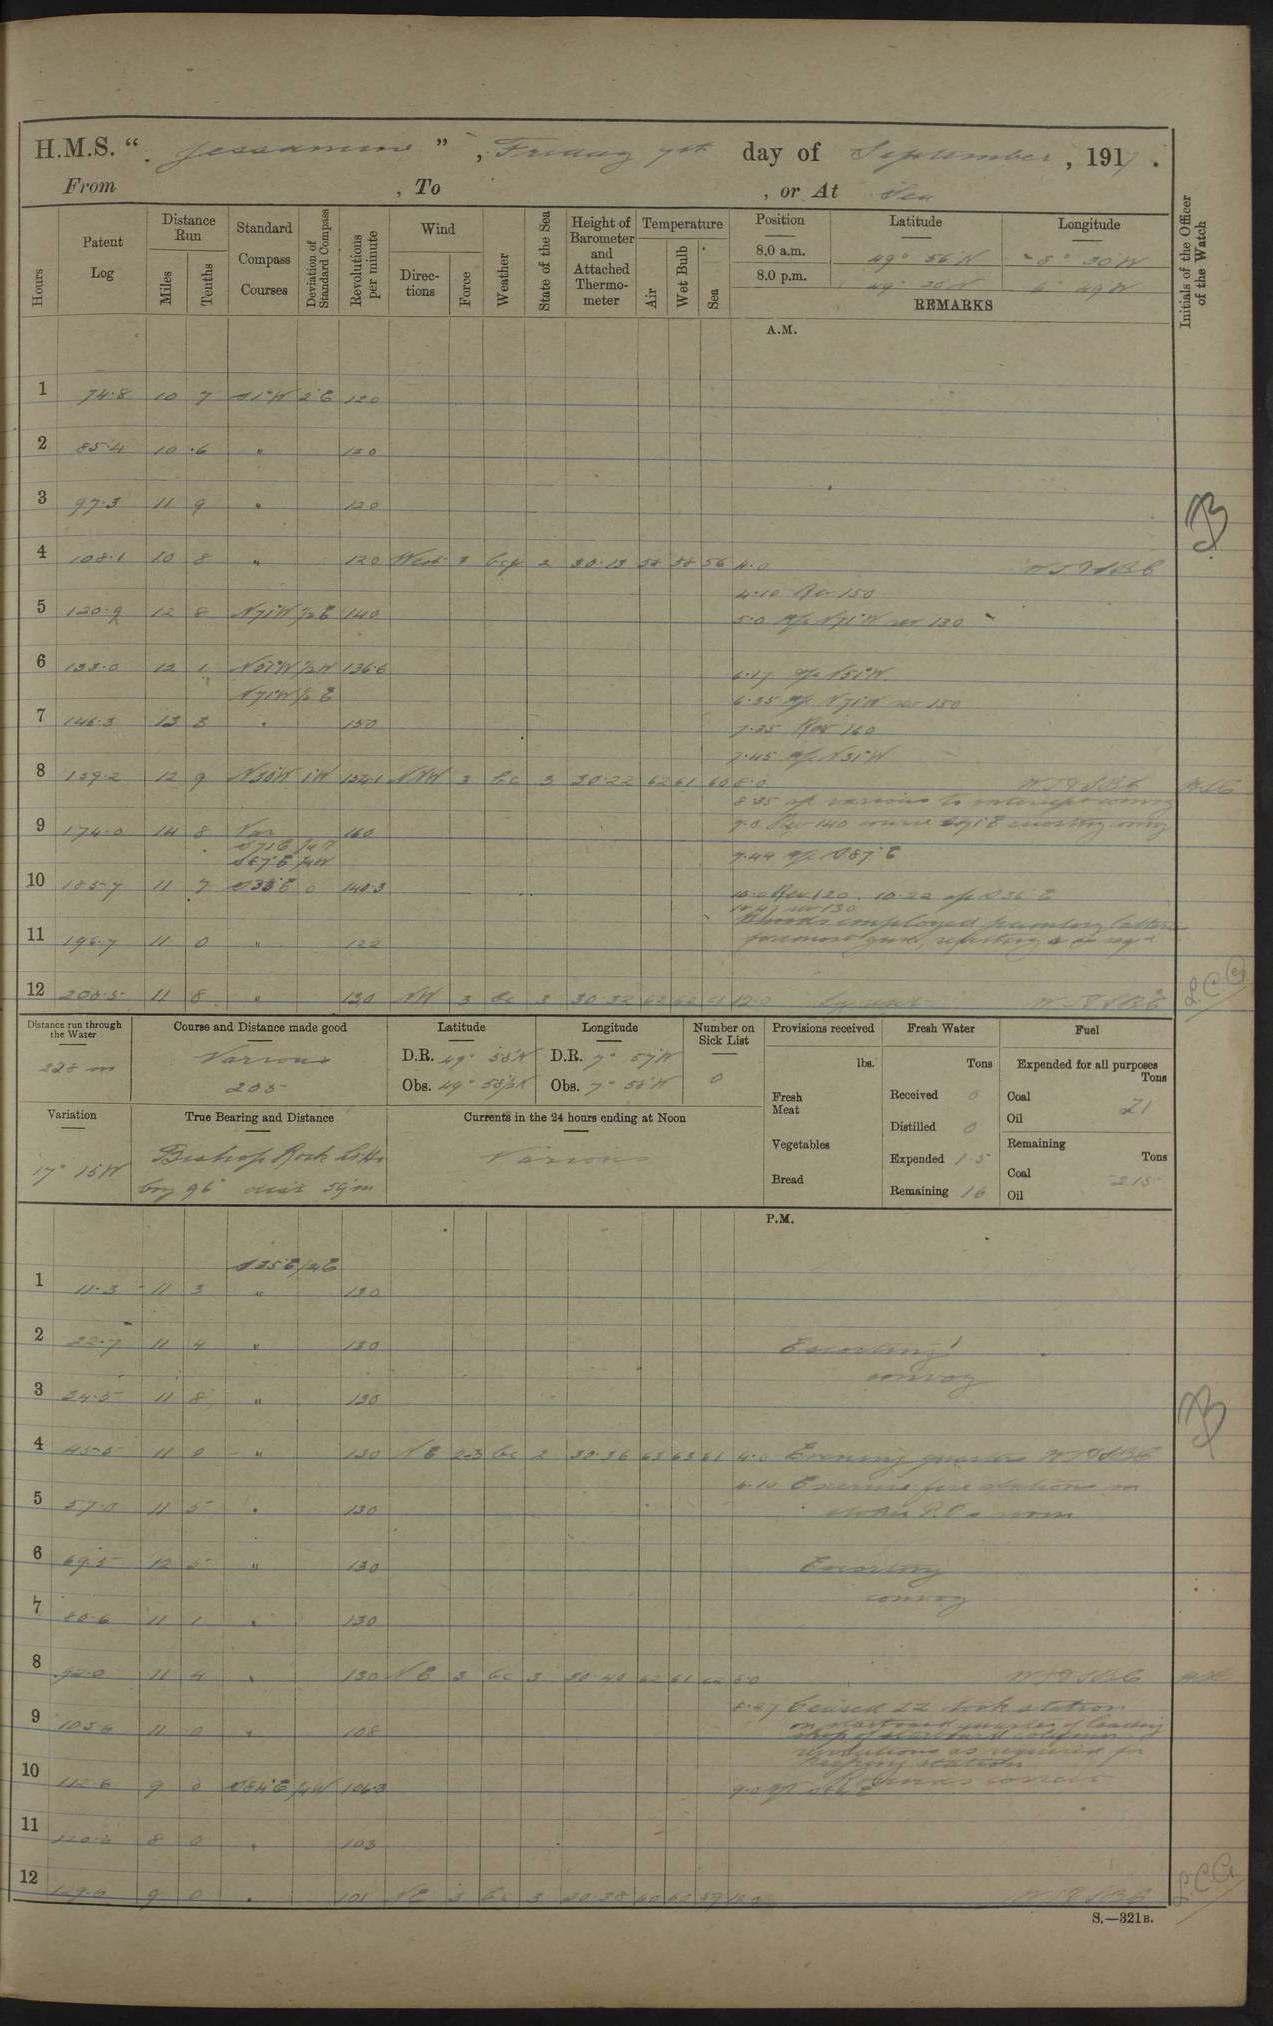 H.M.S. " Jessamine ", Friday 7th day of September, 1917.
From , To , or At Sea
Hours
Patent Log
Distance Run
Miles
Tenths
Standard Compass Courses
Deviation of Standard Compass
Revolutions per minute
Wind
Directions
Force
Weather
State of the Sea
Height of Barometer and Attached Thermometer
Temperature
Air
Wet Bulb
Sea
Position Latitude Longitude
8.0 a.m. 49° 56 N 8° 30 W
8.0 p.m. 49° 20 N 6° 49 W
REMARKS
Initials of the Officer of the Watch
A.M.
1 74.8 10 7 S1°W 2°E 120
2 85.4 10 .6 " 120
3 97.3 11 9 " 120
4 108.1 10 8 " 120 West 3 2 30.13 58 58 56 4.0
4.10 Rev 150
5 120.9 12 8 N71°W ½E 140 5.0 a/c N71°W rev 130
6 133.0 12 1 N51°W ½W 136.6 6.17 a/c N51°W
N71°W ½E 6.35 a/c N71°W rev 150
7 146.3 13 3 " 150 7.25 Rev 160
7.45 a/c N31°W
8 159.2 12 9 N30°W 1°W NNW 3 bc 3 30.22 62 61 60 8.0
8.35 a/c various to intercept convoy
9 174.0 14 8 Var 160 9.0 Rev 140 course S71°E escorting convoy
S71°E
S87°E ¼W 9.49 a/c S87°E
10 185.7 11 7 S35°E 0 140.3 10.0 Rev 120. 10.22 a/c S36°E
10.47 rev 130
Hands employed
11 196.7 11 0 " 122 foremost guns, refitting & as reqd
12 208.5 11 8 " 130 NW 3 bc 3 30.32 62 12.0
L.C.G.
Distance run through the Water
228 m
Course and Distance made good
Various
205
Latitude
D.R. 49° 58'N
Obs. 49° 58½N
Longitude
D.R. 7° 57'W
Obs. 7° 58'W
Number on Sick List
0
Provisions received
lbs.
Fresh Meat
Vegetables
Bread
Fresh Water
Tons
Received 0
Distilled 0
Expended 1.5
Remaining 16
Fuel
Expended for all purposes
Tons
Coal 21
Oil
Remaining
Tons
Coal 215
Oil
Variation
17° 15 W
True Bearing and Distance
Bishop Rock Lt Ho
brg 96° dist 59 m
Currents in the 24 hours ending at Noon
Various
P.M.
S35°E ¼E
1 11.3 11 3 " 130
2 22.7 11 4 " 130 Escorting
convoy
3 34.5 11 8 " 130
4 45.5 11 0 " 130 NE 2-3 bc 2 30.36 63 63 61 4.0 Evening quarters
4.10 Exercise fire stations in
5 57.0 11 5 " 130 Chief P.O.s room
6 69.5 12 5 " 130 Escorting
convoy
7 80.6 11 1 " 130
8 92.0 11 4 " 130 NE 3 bc 3 30.40 62 61 62 8.0
8.27 Ceased ZZ took station
on starboard quarter of leading
ship of starboard column
revolutions as required for
keeping station
9 103.6 11 0 " 108
10 112.6 9 0 S84°E ¼W 106.3 9.0 a/c S84°E
11 120.6 8 0 " 103
12 129.6 9 0 " 101 NE 3 bc 3 30.38 60 60 59 12.0
L.C.G.
S.—321B.